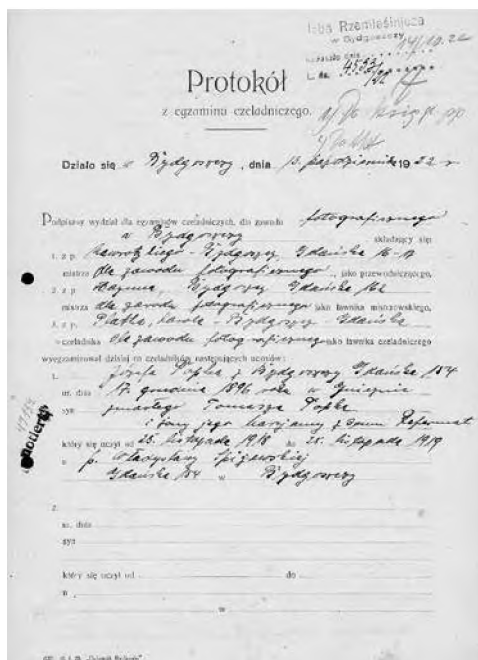 Izba Rzemieślnicza
w Bydgoszczy
14/10.22
L. dz. 4553/22
Protokół
z egzaminu czeladniczego.
Działo się w Bydgoszczy, dnia 13 październik 1922 r
Podpisany wydział dla egzaminów czeladniczych, dla zawodu fotograficznego
w Bydgoszczy składający się:
1. z p. Bydgoszcz, Gdańska 16-17
mistrza dla zawodu fotograficznego, jako przewodniczącego,
2. z p. Bydgoszcz, Gdańska 162
mistrza dla zawodu fotograficznego jako ławnika mistrzowskiego,
3. z p. Bydgoszcz Gdańska
czeladnika dla zawodu fotograficznego jako ławnika czeladniczego
wyegzaminował dzisiaj na czeladników następujących uczniów:
1. Józefa z Bydgoszczy Gdańska 154
ur. dnia 17. grudnia 1896 roku w Gnieźnie
syn zmarłego Tomasza
i żony jego Marjanny z domu Reformat
który się uczył od 25. listopada 1918 do 25. listopada 1919
u p. Władysławy Spiżewskiej
Gdańska 154 w Bydgoszczy
2.
ur. dnia
syn
który się uczył od do
u
w